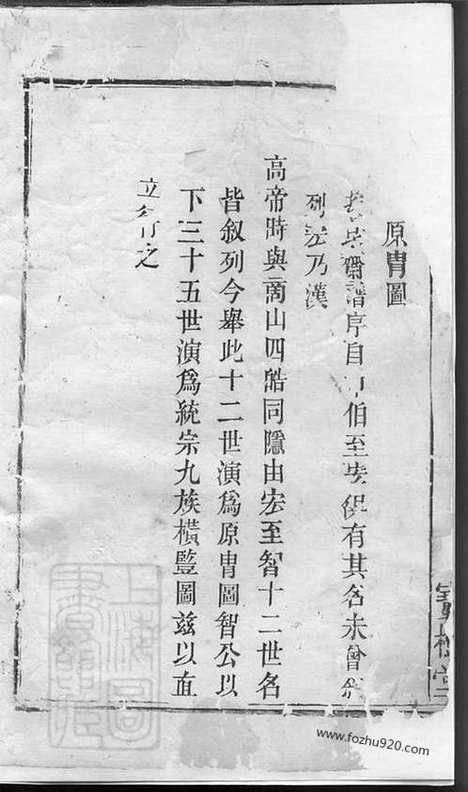 原冑圖
齋譜序自申伯至 俱有其名未曾
列宏乃漢
高帝時與商山四皓同隱由宏至智十二世名
皆叙列今舉此十二世演爲原冑圖智公以
下三十五世演爲統宗九族橫豎圖兹以直
立行之
上海圖書館藏
www.fozhu920.com